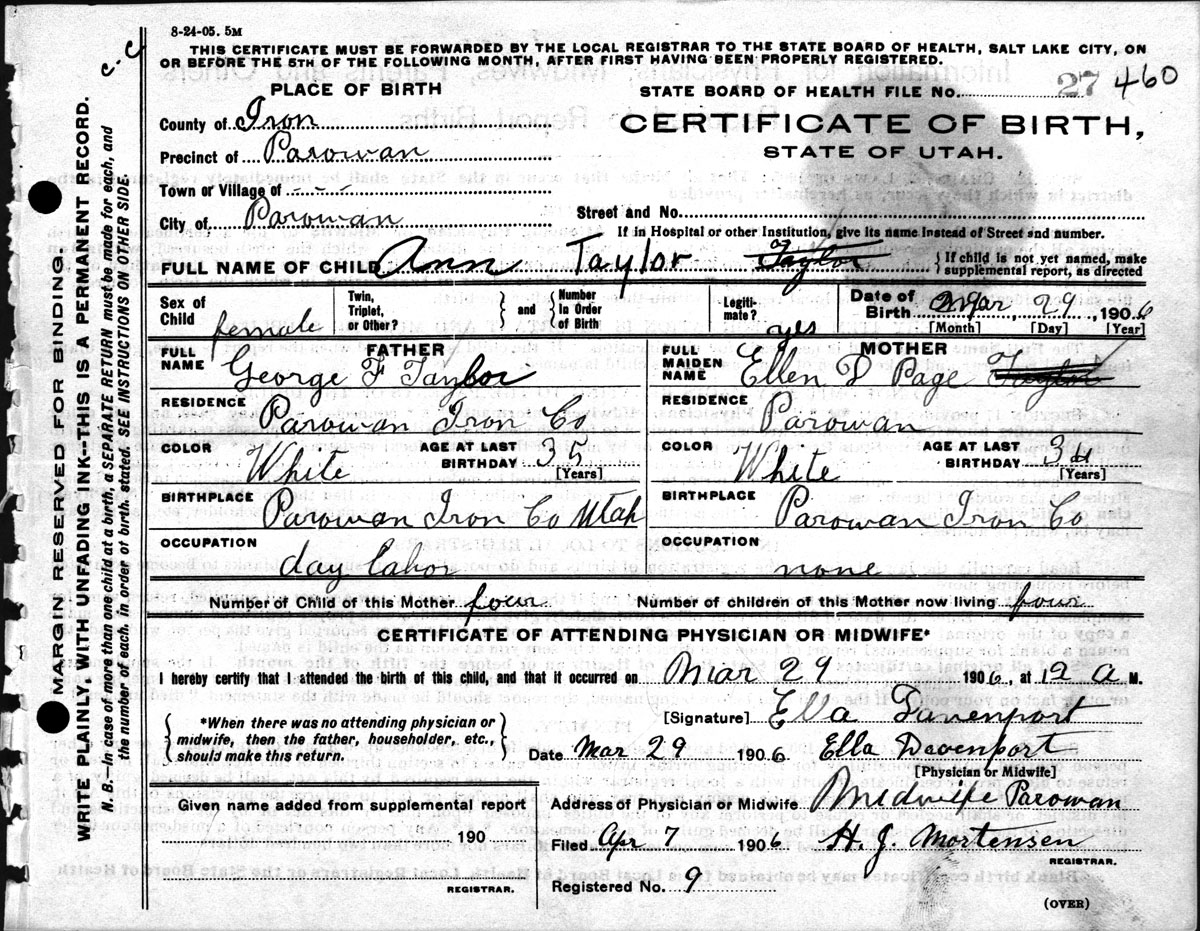 8-24-05. 5M
c.c
THIS CERTIFICATE MUST BE FORWARDED BY THE LOCAL REGISTRAR TO THE STATE BOARD OF HEALTH, SALT LAKE CITY, ON
OR BEFORE THE 5TH OF THE FOLLOWING MONTH, AFTER FIRST HAVING BEEN PROPERLY REGISTERED.
PLACE OF BIRTH
STATE BOARD OF HEALTH FILE No. 27 460
County of Iron
CERTIFICATE OF BIRTH,
Precinct of Parowan
STATE OF UTAH.
Town or Village of - - -
City of Parowan
Street and No.
If in Hospital or other Institution, give its name instead of Street and number.
FULL NAME OF CHILD Ann Taylor Taylor { If child is not yet named, make
supplemental report, as directed
Sex of Child female
Twin, Triplet, or Other? } and { Number in Order of Birth
Legiti-mate? yes
Date of Birth Mar, 29, 1906
[Month] [Day] [Year]
FATHER
FULL NAME George F Taylor
MOTHER
FULL MAIDEN NAME Ellen D Page Taylor
RESIDENCE Parowan Iron Co
RESIDENCE Parowan
COLOR White AGE AT LAST BIRTHDAY 35 [Years]
COLOR White AGE AT LAST BIRTHDAY 34 [Years]
BIRTHPLACE Parowan Iron Co Utah
BIRTHPLACE Parowan Iron Co
OCCUPATION day labor
OCCUPATION none
Number of Child of this Mother four Number of children of this Mother now living four
CERTIFICATE OF ATTENDING PHYSICIAN OR MIDWIFE*
I hereby certify that I attended the birth of this child, and that it occurred on Mar 29 1906, at 12 A M.
{ *When there was no attending physician or
midwife, then the father, householder, etc.,
should make this return. }
[Signature] Ella Davenport
Date Mar 29 1906 Ella Devenport
[Physician or Midwife]
Given name added from supplemental report
190
REGISTRAR.
Address of Physician or Midwife Midwife Parowan
Filed Apr 7 1906 H. J. Mortensen
REGISTRAR.
Registered No. 9
(OVER)
MARGIN RESERVED FOR BINDING.
WRITE PLAINLY, WITH UNFADING INK--THIS IS A PERMANENT RECORD.
N. B.—In case of more than one child at a birth, a SEPARATE RETURN must be made for each, and
the number of each, in order of birth, stated. SEE INSTRUCTIONS ON OTHER SIDE.